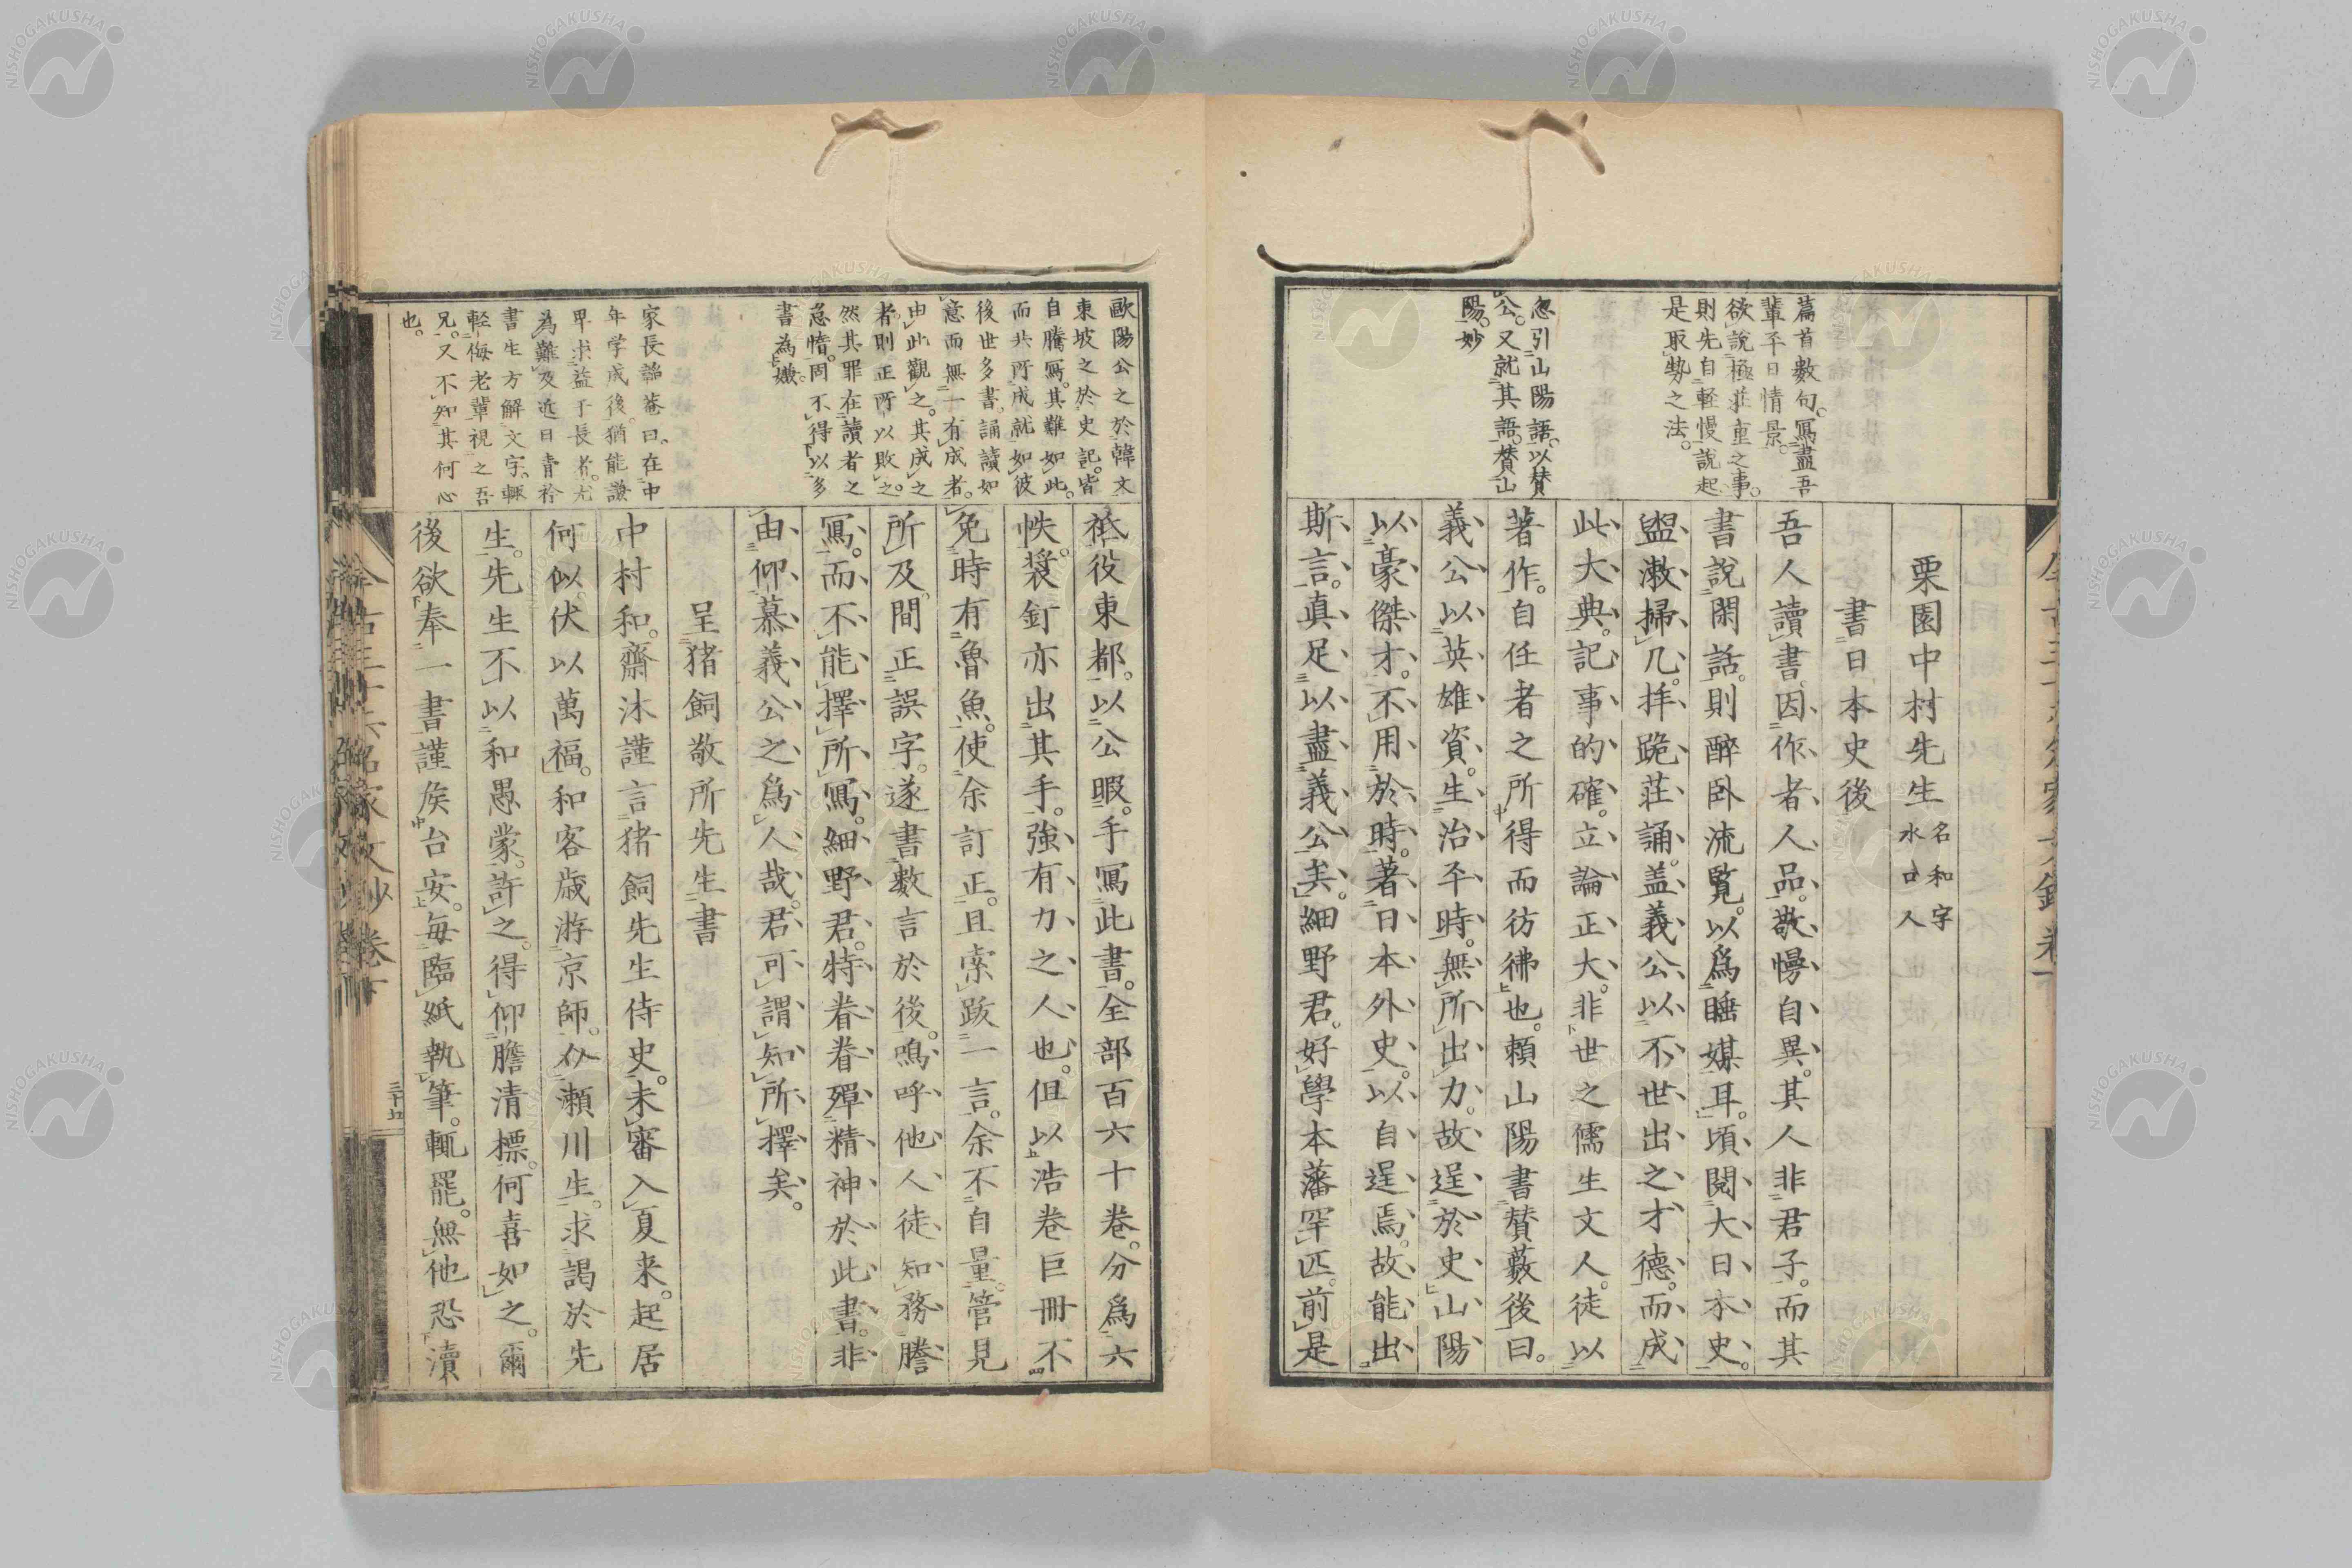 篇首數句。寫盡吾
輩平日情景。
欲說極莊重之事。
則先自輕慢說起
是取勢之法。
忽引山陽語。以賛
公。又就其語。賛山
陽。妙
栗園中村先生 名和字
水口人
書日本史後
吾人讀書。因作者人品。敬慢自異。其人非君子。而其
書說閑話。則醉臥流覽。以爲睡媒耳。頃閱大日本史。
盥漱掃几。拝跪莊誦。盖義公以不世出之才德。而成
此大典。記事的確。立論正大。非世之儒生文人。徒以
著作。自任者之所得而彷彿也。頼山陽書賛藪後曰。
義公以英雄資。生治平時。無所出力。故逞於史。山陽
以豪傑才。不用於時。著日本外史。以自逞焉。故能出
斯言。真足以盡義公矣。細野君。好學本藩罕匹。前是
歐陽公之於韓文
東坡之於史記。皆
自騰寫。其難如此。
而共所成就如彼
後世多書。誦讀如
意而無一有成者。
由此觀之。其成之
者。則正所以敗之。
然其罪在讀者之
怠惰。固不得以多
書為慽。
家長韜菴曰。在中
年学成後。猶能謙
卑求益于長者。尤
為難。及近日青衿
書生方解文字。輙
軽侮老輩視之吾
兄。又不知其何心
也。
祗役東都。以公暇。手寫此書。全部百六十卷。分爲六
帙。裝釘亦出其手。強有力之人也。但以浩卷巨冊不
免時有魯魚。使余訂正。且索跋一言。余不自量。管見
所及。間正誤字。遂書數言於後。嗚呼他人徒知務謄
寫。而不能擇所寫。細野君。特眷眷殫精神於此書。非
由仰慕義公之爲人哉。君可謂知所擇矣。
呈猪飼敬所先生書
中村和。齋沐謹言猪飼先生侍史。未審入夏来。起居
何似。伏以萬福。和客歲游京師。介瀬川生。求謁於先
生。先生不以和愚蒙。許之。得仰膽清標。何喜如之。爾
後欲奉一書謹矦台安。毎臨紙執筆。輒罷。無他恐瀆
家文抄 卷下
三十五